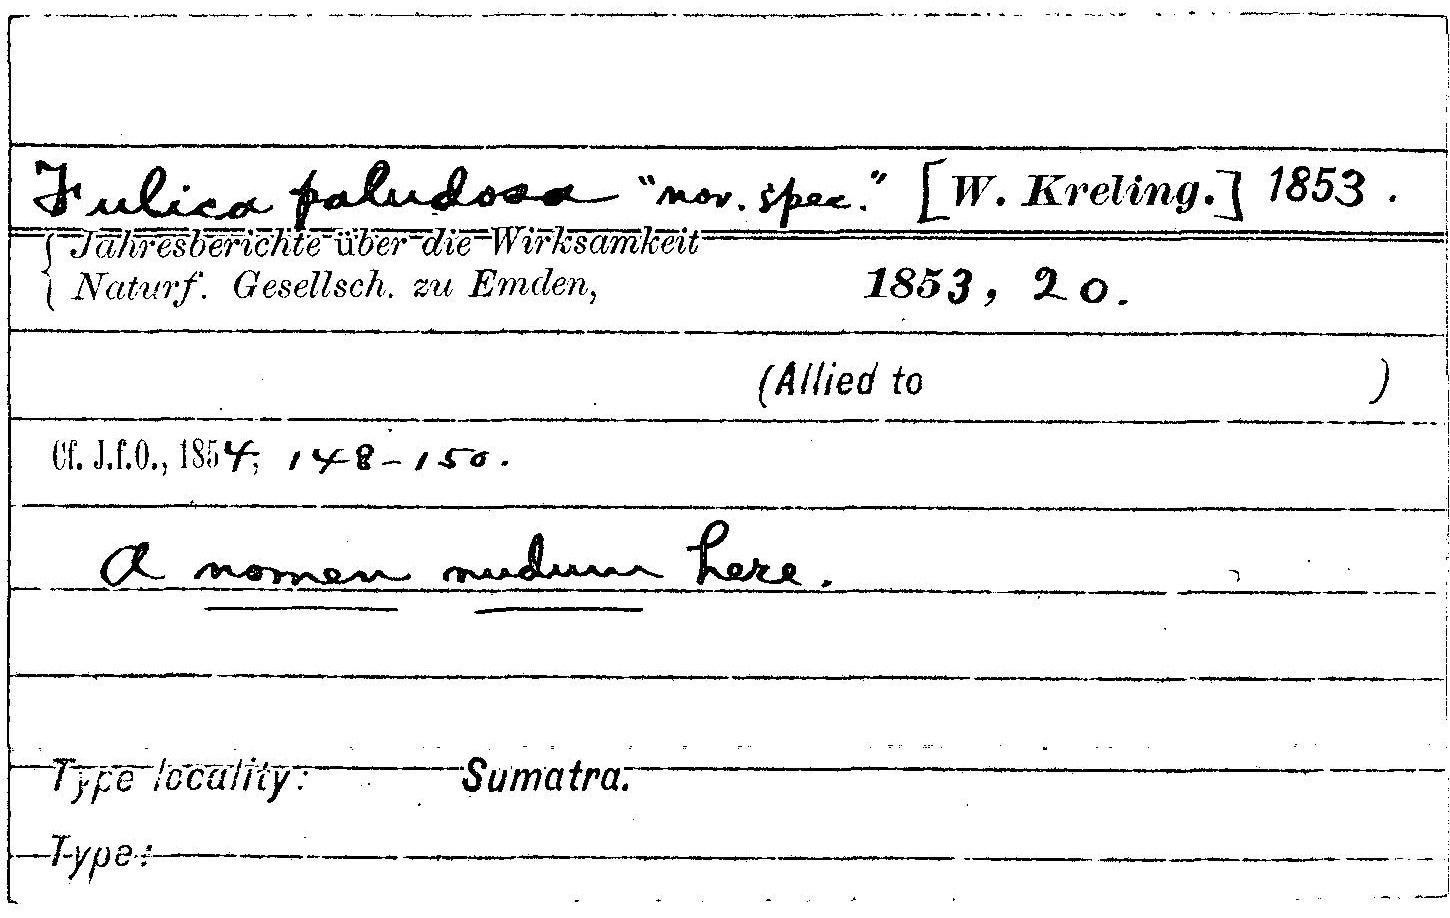 Fulica paludosa "nov. spec." [W. Kreling.] 1853.
Jahresberichte über die Wirksamkeit
Naturf. Gesellsch. zu Emden, 1853, 20.
(Allied to )
Cf. J.f.O., 1854, 148-150.
A nomen nudum here.
Type locality: Sumatra.
Type: